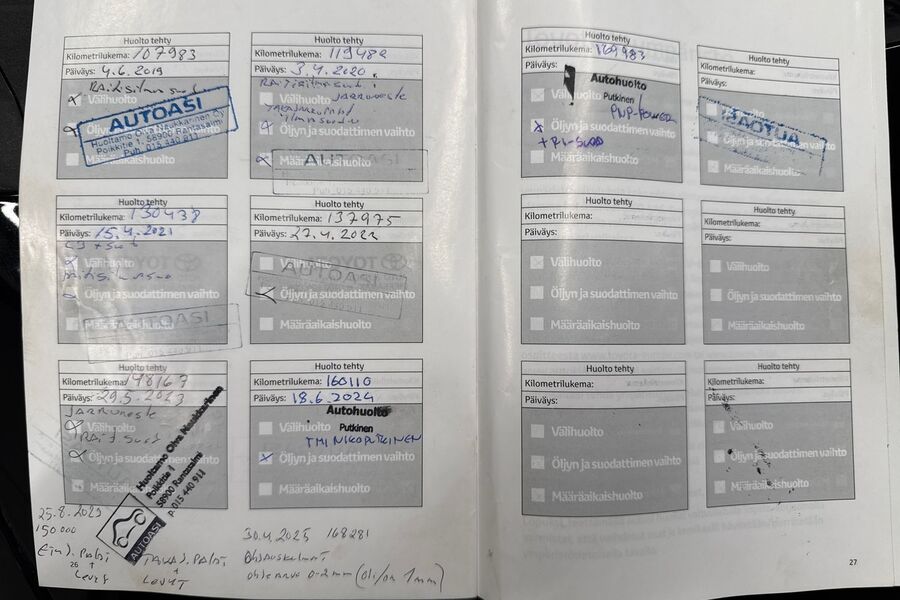 Huolto tehty
Kilometrilukema: 107983
Päiväys: 4.6.2019
Välihuolto
AUTOASI
Huoltamo Oiva Naukkarinen Oy
Poikkitie 1, 58900 Rantasalmi
Puh. 015 440 911
Huolto tehty
Kilometrilukema: 119482
Päiväys: 3.4.2020
JARRUNESTE
Öljyn ja suodattimen vaihto
AUTOASI
Huolto tehty
Kilometrilukema: 130438
Päiväys: 15.4.2021
Välihuolto
Öljyn ja suodattimen vaihto
AUTOASI
Huolto tehty
Kilometrilukema: 137975
Päiväys: 27.4.2022
Välihuolto
AUTOASI
Öljyn ja suodattimen vaihto
Määräaikaishuolto
Huolto tehty
Kilometrilukema: 148167
Päiväys: 29.5.2023
JARRUNESTE
Välihuolto
Öljyn ja suodattimen vaihto
Huoltamo Oiva Naukkarinen
Poikkitie 1
58900 Rantasalmi
P. 015 440 911
AUTOASI
Huolto tehty
Kilometrilukema: 160110
Päiväys: 18.6.2024
Autohuolto
Välihuolto
Putkinen
TMI NIKO PUTKINEN
Öljyn ja suodattimen vaihto
Määräaikaishuolto
25.8.2023
150.000
LEVYT
TAKAJ. PALAT
LEVYT
30.4.2025 168281
0-2mm (oli/on 1mm)
Huolto tehty
Kilometrilukema: 169983
Päiväys:
Autohuolto
Välihuolto
Putkinen
Öljyn ja suodattimen vaihto
Määräaikaishuolto
Huolto tehty
Kilometrilukema:
Päiväys:
AUTOASI
Öljyn ja suodattimen vaihto
Määräaikaishuolto
Huolto tehty
Kilometrilukema:
Päiväys:
Välihuolto
Öljyn ja suodattimen vaihto
Määräaikaishuolto
Huolto tehty
Kilometrilukema:
Päiväys:
Välihuolto
Öljyn ja suodattimen vaihto
Määräaikaishuolto
Huolto tehty
Kilometrilukema:
Päiväys:
Välihuolto
Öljyn ja suodattimen vaihto
Määräaikaishuolto
Huolto tehty
Kilometrilukema:
Päiväys:
Välihuolto
Öljyn ja suodattimen vaihto
Määräaikaishuolto
27